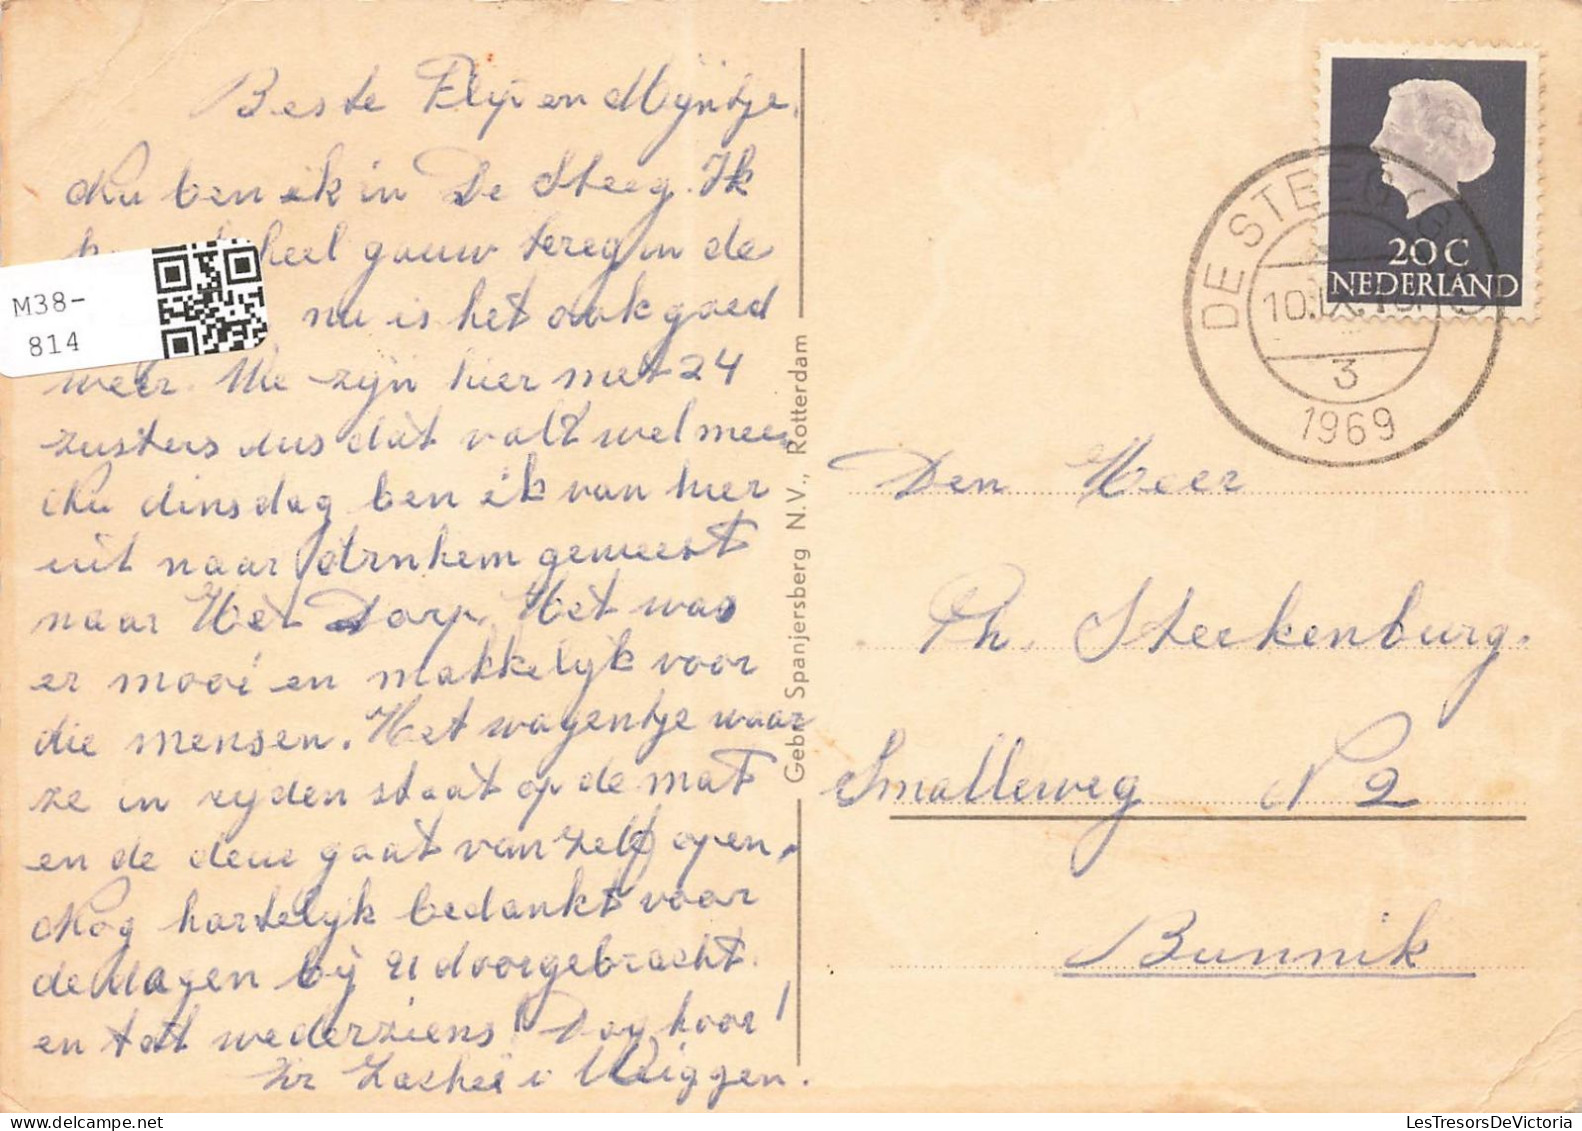 Beste Flip en Mijntje.
Nu ben ik in De Steeg. Ik
heel gauw tereg in de
nu is het ook goed
weer. We zijn hier met 24
zusters dus dat valt wel mee
Nu dinsdag ben ik van hier
uit naar Arnhem geweest
naar Het Dorp. Het was
er mooi en makkelijk voor
die mensen. Het wagentje waar
ze in rijden staat op de mat
en de deur gaat van zelf open.
Nog hartelijk bedankt voor
de dagen bij U doorgebracht.
en tot wederziens! Dag hoor!
Zr
M38-
814
Gebr. Spanjersberg N.V., Rotterdam
20C
NEDERLAND
DE STEEG
10.IX
3
1969
Den Heer
Ph. Sterkenburg.
Smalleweg N 2
Bunnik
LesTresorsDeVictoria